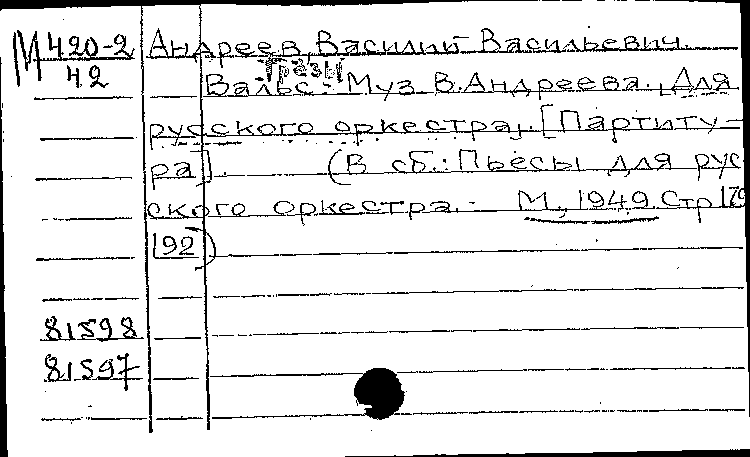 М 420-2 Андреев, Василий Васильевич.
42 Грёзы
Вальс. Муз. В. Андреева. [Для
русского оркестра]. [Партиту-
ра]. (В сб.: Пьесы для рус
ского оркестра. - М., 1949. Стр 179
192)
81598
81597